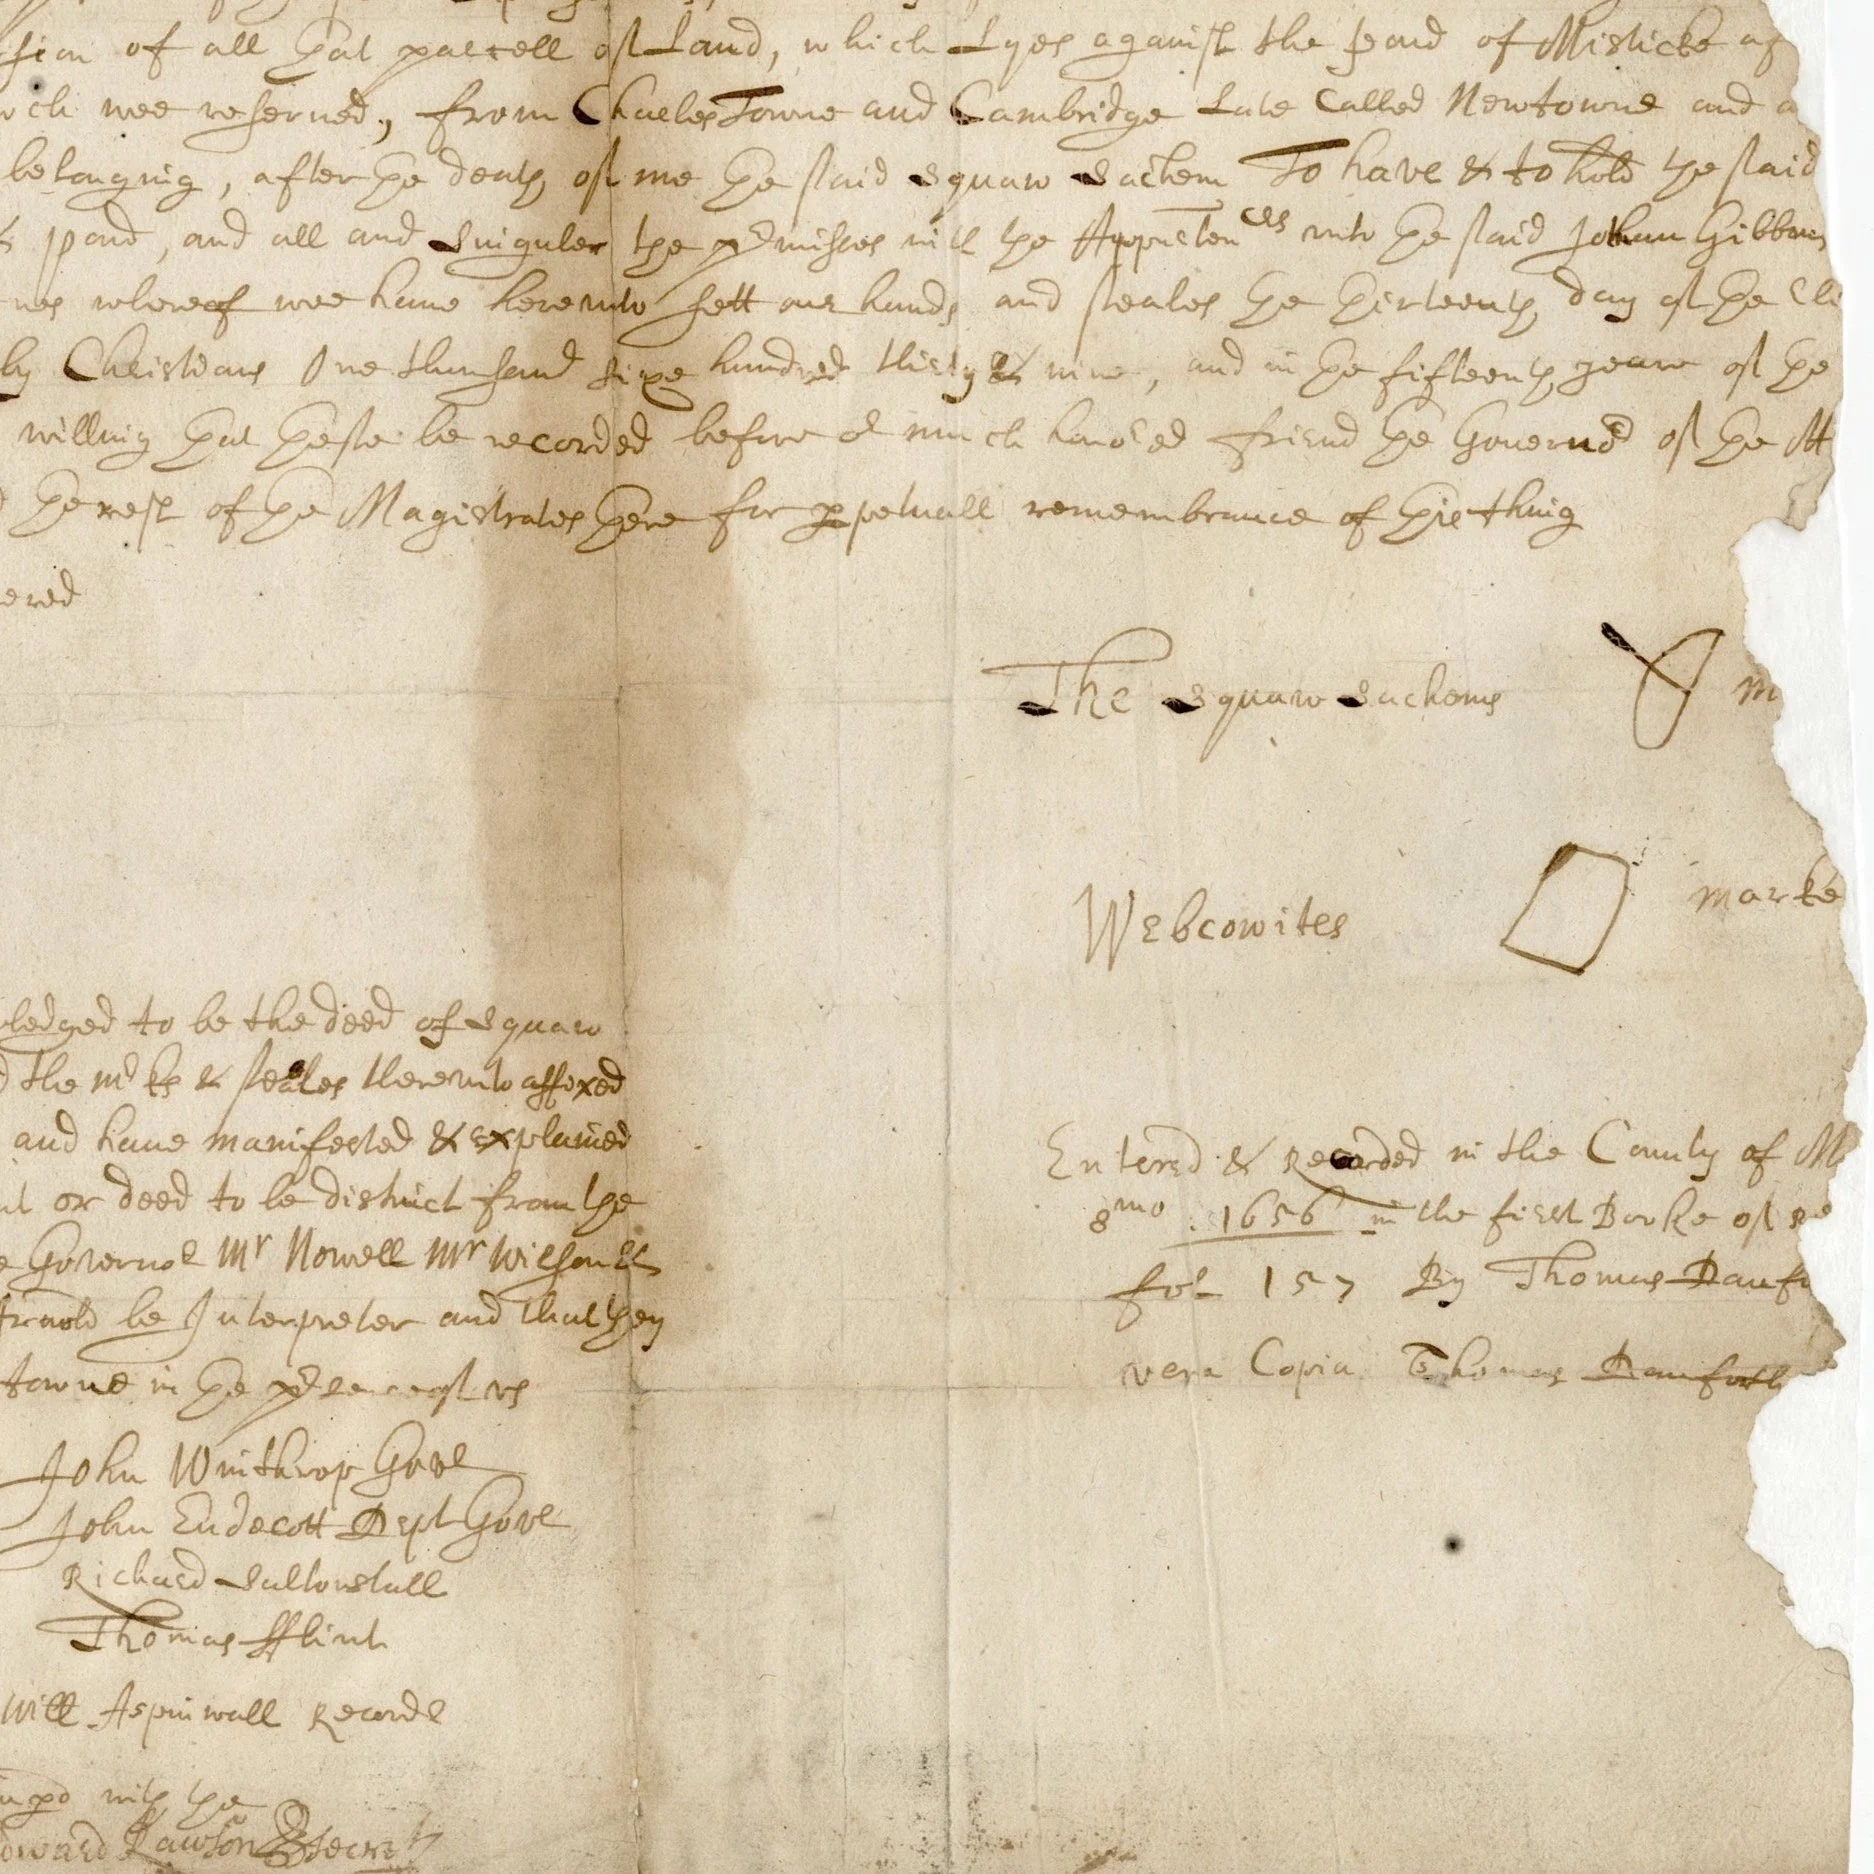 sion of all that parcell of Land, which Lyes against the pond of Misticke
wch wee reserued, from CharlesTowne and Cambridge Late Called Newtowne and
belonging, after the death of me the said Squaw Sachem To have & to hold the said
pond, and all and Singuler the prmisses with the Appurtences vnto the said Jothan Gibbons
whereof wee haue herevnto sett our hands and seales the thirteenth day of the
by Christians One thousand sixe hundred thirty & nine, and in the fifteenth yeare of the
willing that these be recorded before or much honored friend the Governor of the
the rest of the Magistrates there for perpetuall remembrance of this thing
ered
The Squaw Sachems m
Webcowites marke
ledged to be the deed of Squaw
the mrks & seales therevnto affixed
and haue manifested & explained
or deed to be distinct from the
Governor Mr Nowell Mr Wilson &
be Interpreter and that they
towne in the prsence of vs
John Winthrop Govr
John Endecott Dept Govr
Richard Saltonstall
Thomas fflint
Will Aspinwall Recordr
with the
Edward Rawson Secret
Entered & Recorded in the County of M
8mo . 1656 in the first Booke of Re
fol 157 By Thomas Danfo
vera Copia Thomas Danforth